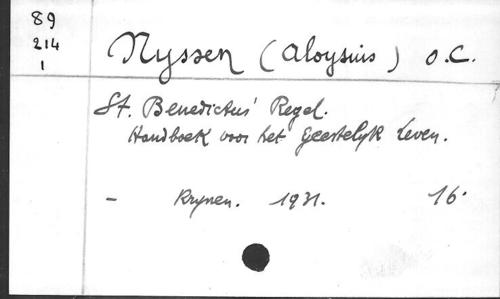 89
214
1
Nyssen (Aloysius) O.C.
St. Benedictus' Regel.
Handboek voor het Geestelyk Leven.
- 1931. 16°